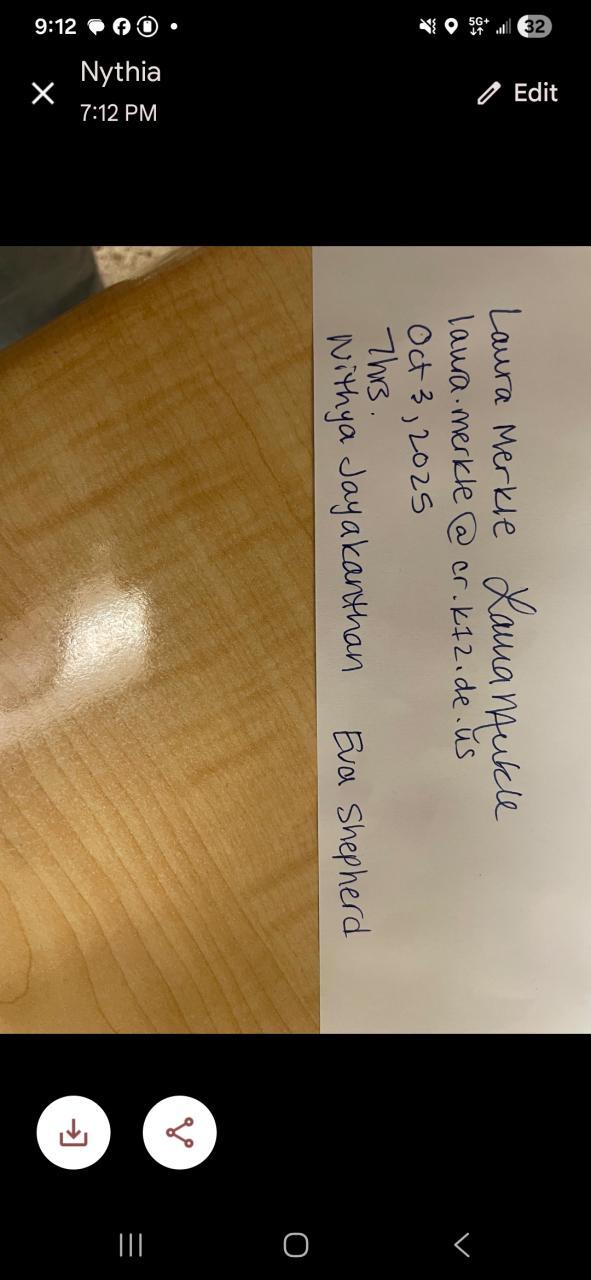 9:12
5G+
32
Nythia
7:12 PM
Edit
Laura Merkle Laura Merkle
laura.merkle@cr.k12.de.us
Oct 3, 2025
7hrs.
Nithya Jayakanthan Eva Shepherd